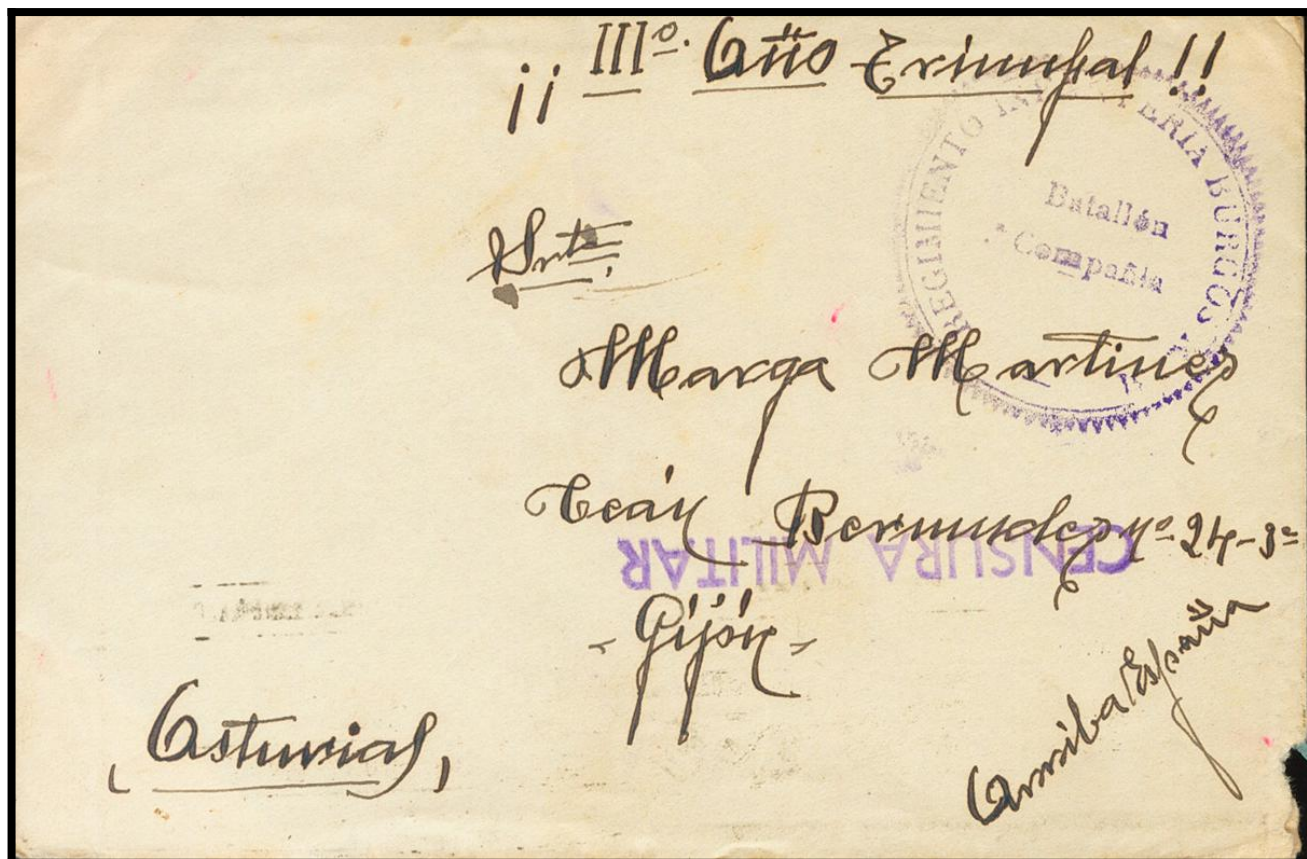 ¡¡ IIIº. Año Triunfal !!
REGIMIENTO INFANTERIA BURGOS N
Batallón
Compañía
Srta.
Marga Martinez
Ceán Bermudez nº 24-3º
CENSURA MILITAR
- Gijón -
(Asturias)
Arriba España